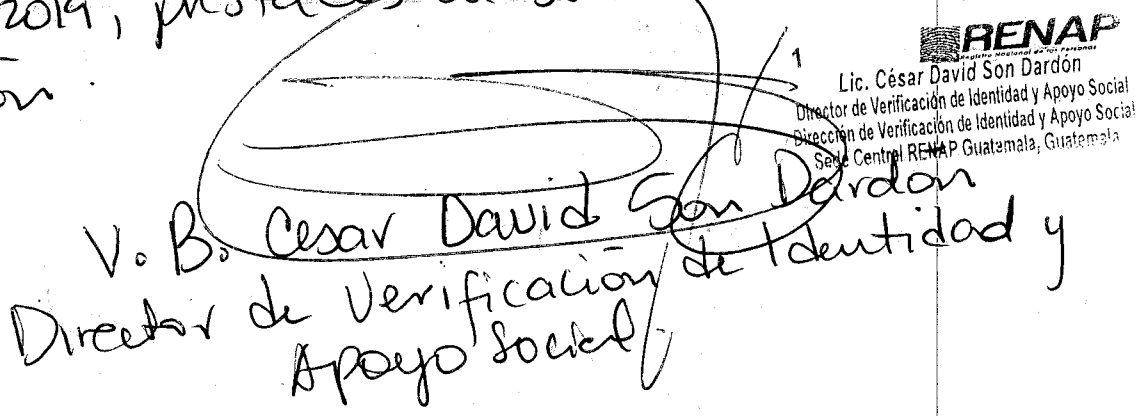 2019,
RENAP
Registro Nacional de las Personas
1
Lic. César David Son Dardón
Director de Verificación de Identidad y Apoyo Social
Dirección de Verificación de Identidad y Apoyo Social
Sede Central RENAP Guatemala, Guatemala
V. B. Cesar David Son Dardon
Director de Verificación de Identidad y
Apoyo Social